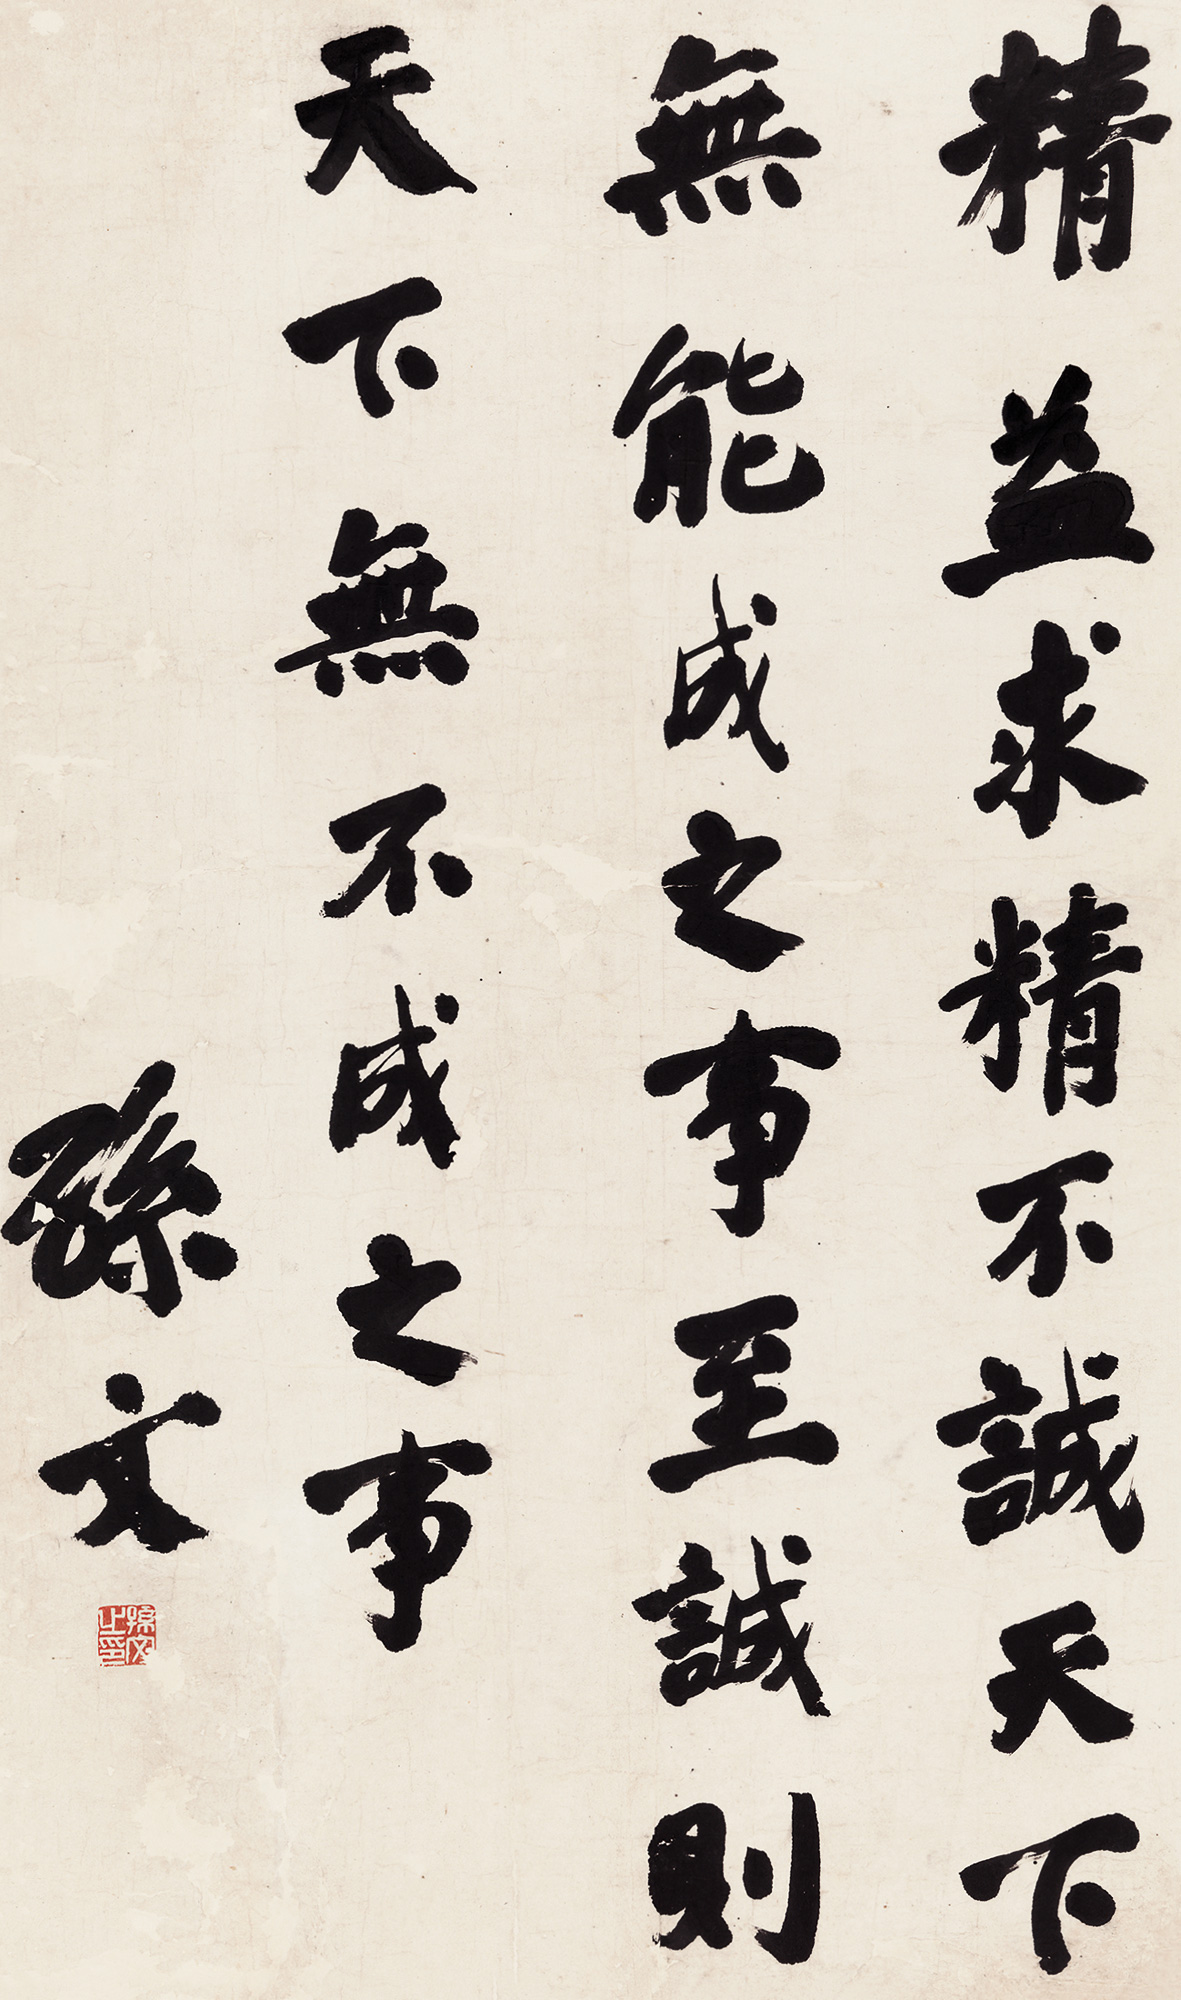 精益求精不誠天下
無能成之事至誠則
天下無不成之事
孫文
孫文之印